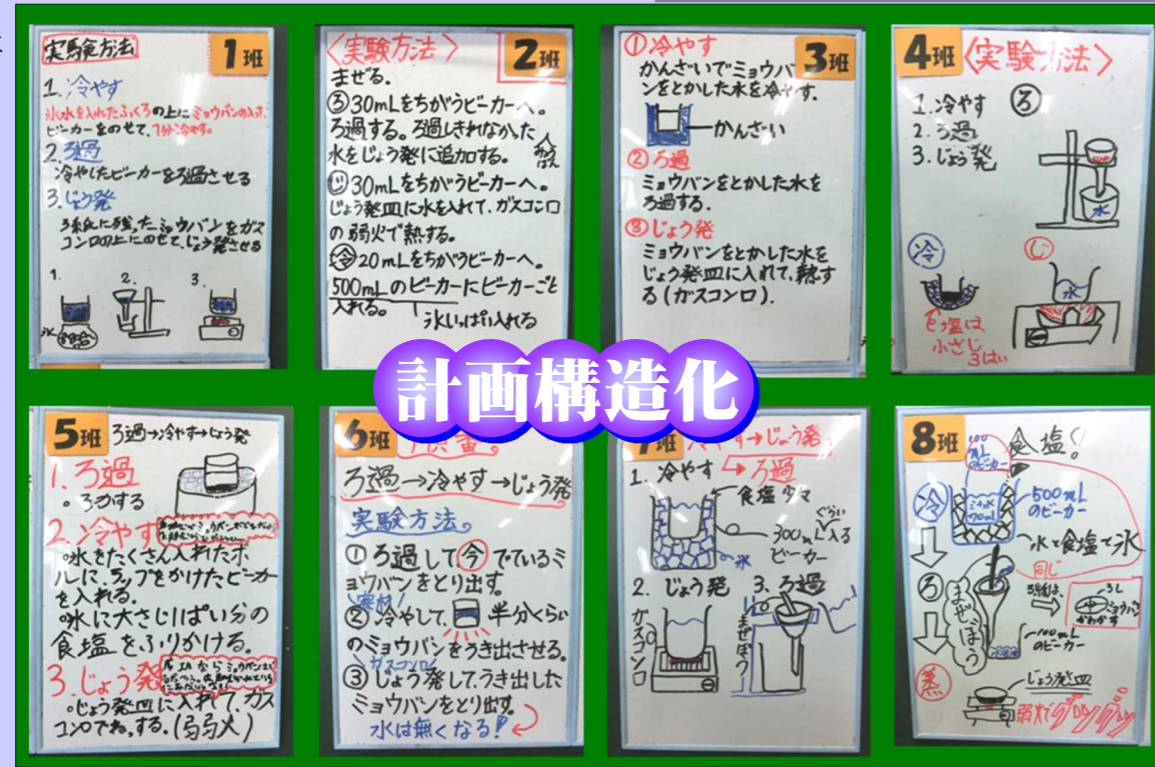 実験方法
1班
1.冷やす
氷水を入れたふくろの上にミョウバンの入った
ビーカーをのせて、1分冷やす。
2.ろ過
冷やしたビーカーをろ過させる
3.じょう発
ろ紙に残ったミョウバンをガス
コンロの上にのせて、じょう発させる
1. 2. 3.
氷
〈実験方法〉
2班
まぜる。
ろ30mLをちがうビーカーへ。
ろ過する。ろ過しきれなかった
水をじょう発に追加する。
じ30mLをちがうビーカーへ。
じょう発皿に水を入れて、ガスコンロ
の弱火で熱する。
冷20mLをちがうビーカーへ。
500mLのビーカーにビーカーごと
入れる。
氷いっぱい入れる
①冷やす
3班
かんざいでミョウバ
ンをとかした水を冷やす.
かんざい
②ろ過
ミョウバンをとかした水を
ろ過する.
③じょう発
ミョウバンをとかした水を
じょう発皿に入れて、熱す
る(ガスコンロ).
4班
〈実験方法〉
1.冷やす
2.ろ過
3.じょう発
ろ
水
冷
じ
水
食塩は
小さじ
3はい
計画構造化
5班
ろ過→冷やす→じょう発
1.ろ過
。ろかする
2.冷やす
。氷をたくさん入れたボ
ルに、ラップをかけたビーカー
を入れる。
。氷に大さじ1ぱい分の
食塩をふりかける。
3.じょう発
。じょう発皿に入れて、ガス
コンロでねっする。(弱火)
6班
順番。
ろ過→冷やす→じょう発
実験方法。
①ろ過して今でているミ
ョウバンをとり出す。
②冷やして、半分くらい
のミョウバンをうき出させる。
ガスコンロ
③じょう発して、うき出した
ミョウバンをとり出す。
水は無くなる!
7班
冷やす→じょう発
→ろ過
1.冷やす
食塩少々
300mL入る
ぐらい
ビーカー
氷
2.じょう発
3.ろ過
ガスコンロ
まぜぼう
8班
食塩!
100mL
のビーカー
冷
500mL
のビーカー
水と食塩と氷
同じ
ろ
まぜぼう
100mL
のビーカー
蒸
じょう発皿
弱火でグツグツ